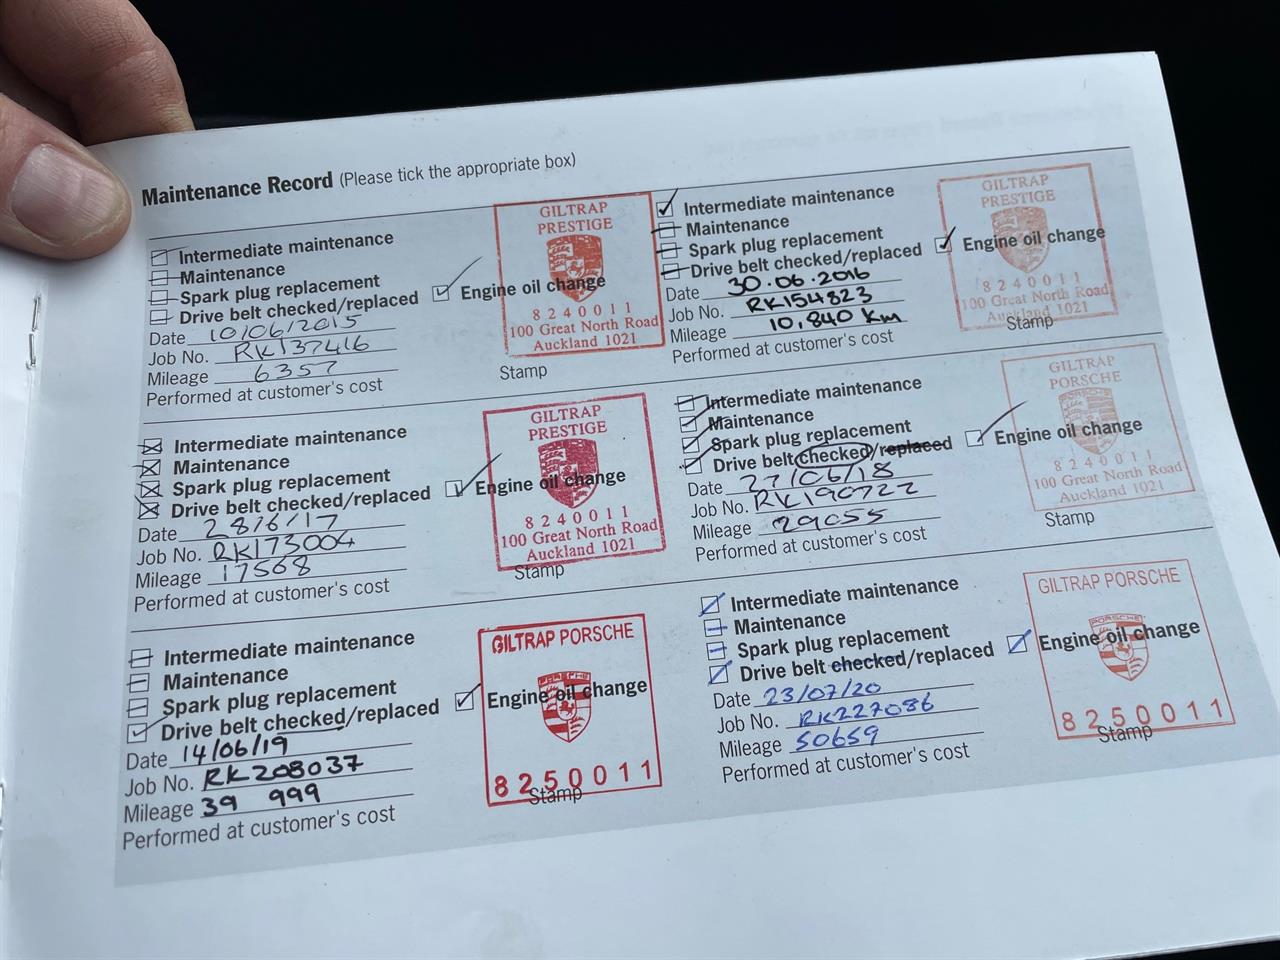 Maintenance Record (Please tick the appropriate box)
Intermediate maintenance
Maintenance
Spark plug replacement
Drive belt checked/replaced
Engine oil change
Date 10/06/2015
Job No. RK137416
Mileage 6357
Performed at customer's cost
GILTRAP
PRESTIGE
8240011
100 Great North Road
Auckland 1021
Stamp
Intermediate maintenance
Maintenance
Spark plug replacement
Drive belt checked/replaced
Engine oil change
Date 30.06.2016
Job No. RK154823
Mileage 10,840 km
Performed at customer's cost
GILTRAP
PRESTIGE
8240011
100 Great North Road
Auckland 1021
Stamp
Intermediate maintenance
Maintenance
Spark plug replacement
Drive belt checked/replaced
Engine oil change
Date 28/6/17
Job No. RK173004
Mileage 17568
Performed at customer's cost
GILTRAP
PRESTIGE
8240011
100 Great North Road
Auckland 1021
Stamp
Intermediate maintenance
Maintenance
Spark plug replacement
Drive belt checked/replaced
Engine oil change
Date 27/06/18
Job No. RK190722
Mileage 29055
Performed at customer's cost
GILTRAP
PORSCHE
8240011
100 Great North Road
Auckland 1021
Stamp
Intermediate maintenance
Maintenance
Spark plug replacement
Drive belt checked/replaced
Engine oil change
Date 14/06/19
Job No. RK208037
Mileage 39 999
Performed at customer's cost
GILTRAP PORSCHE
8250011
Stamp
Intermediate maintenance
Maintenance
Spark plug replacement
Drive belt checked/replaced
Engine oil change
Date 23/07/20
Job No. RK227086
Mileage 50659
Performed at customer's cost
GILTRAP PORSCHE
PORSCHE
8250011
Stamp